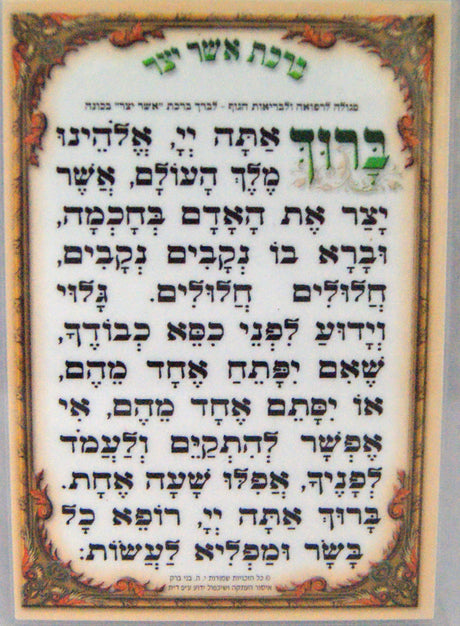 ברכת אשר יצר
סגולה לרפואה ולבריאות הגוף - לברך ברכת "אשר יצר" בכונה
בָּרוּךְ אַתָּה יְיָ, אֱלֹהֵינוּ
מֶלֶךְ הָעוֹלָם, אֲשֶׁר
יָצַר אֶת הָאָדָם בְּחָכְמָה,
וּבָרָא בוֹ נְקָבִים נְקָבִים,
חֲלוּלִים חֲלוּלִים. גָּלוּי
וְיָדוּעַ לִפְנֵי כִסֵּא כְבוֹדֶךָ,
שֶׁאִם יִפָּתֵחַ אֶחָד מֵהֶם,
אוֹ יִסָּתֵם אֶחָד מֵהֶם, אִי
אֶפְשָׁר לְהִתְקַיֵּם וְלַעֲמֹד
לְפָנֶיךָ, אֲפִלּוּ שָׁעָה אֶחָת.
בָּרוּךְ אַתָּה יְיָ, רוֹפֵא כָל
בָּשָׂר וּמַפְלִיא לַעֲשׂוֹת:
© כל הזכויות שמורות י. ה. בני ברק
איסור העתקה ושיכפול ידוע ע״פ ד״ת